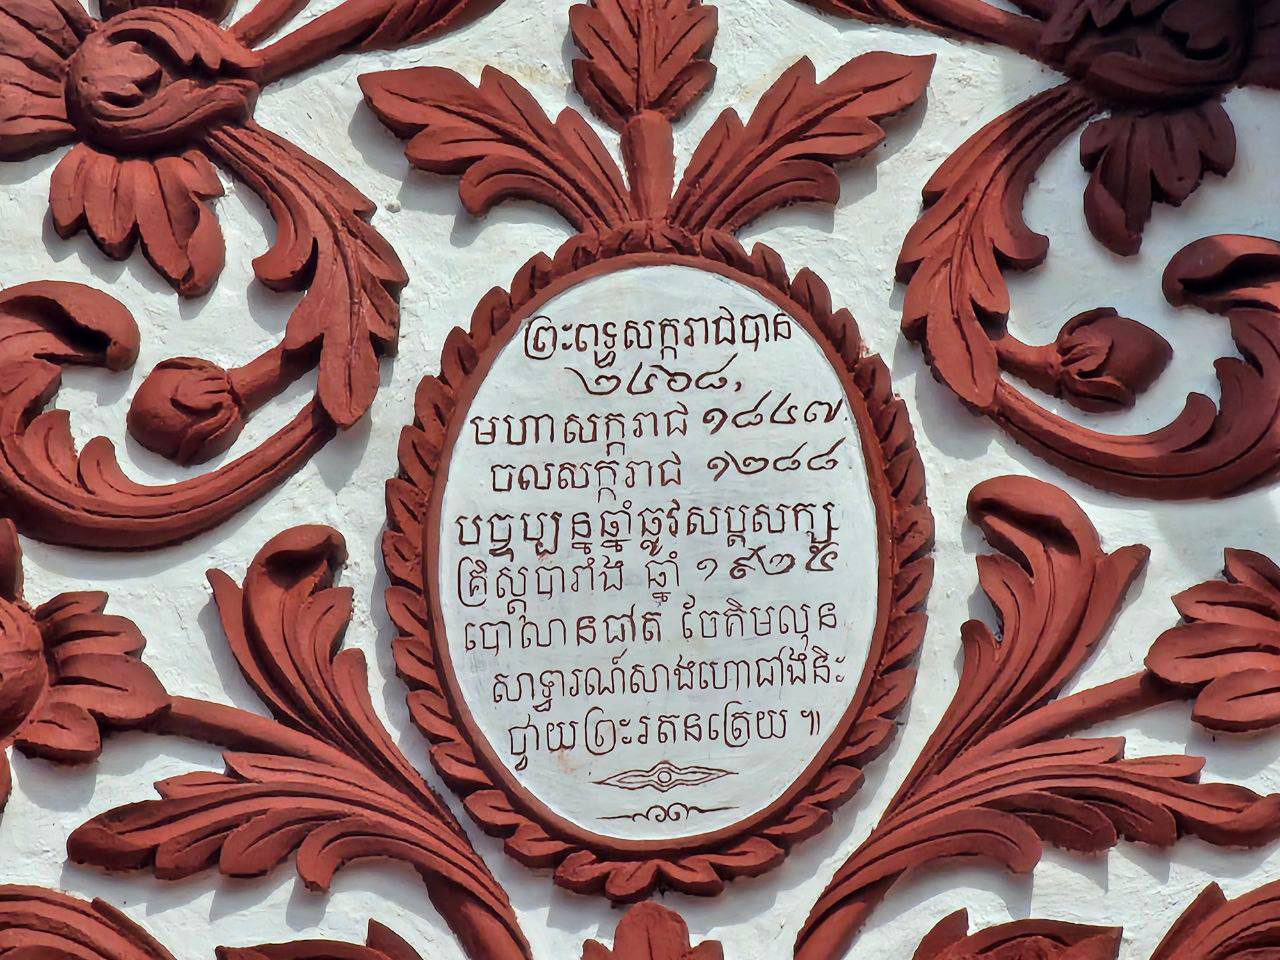 ព្រះពុទ្ធសក្ករាជបាន
២៤៦៨,
មហាសក្ករាជ ១៨៤៧
ចលសក្ករាជ ១២៨៨
បច្ចុប្បន្នឆ្នាំឆ្លូវសប្តសក្ស
គ្រិស្តបារាំង ឆ្នាំ ១៩២៥
បោលានជាត ចែគិមលុន
សាទ្ធារណ៍សាងហោជាងនិះ
ថ្វាយព្រះរតនត្រៃយ ៕